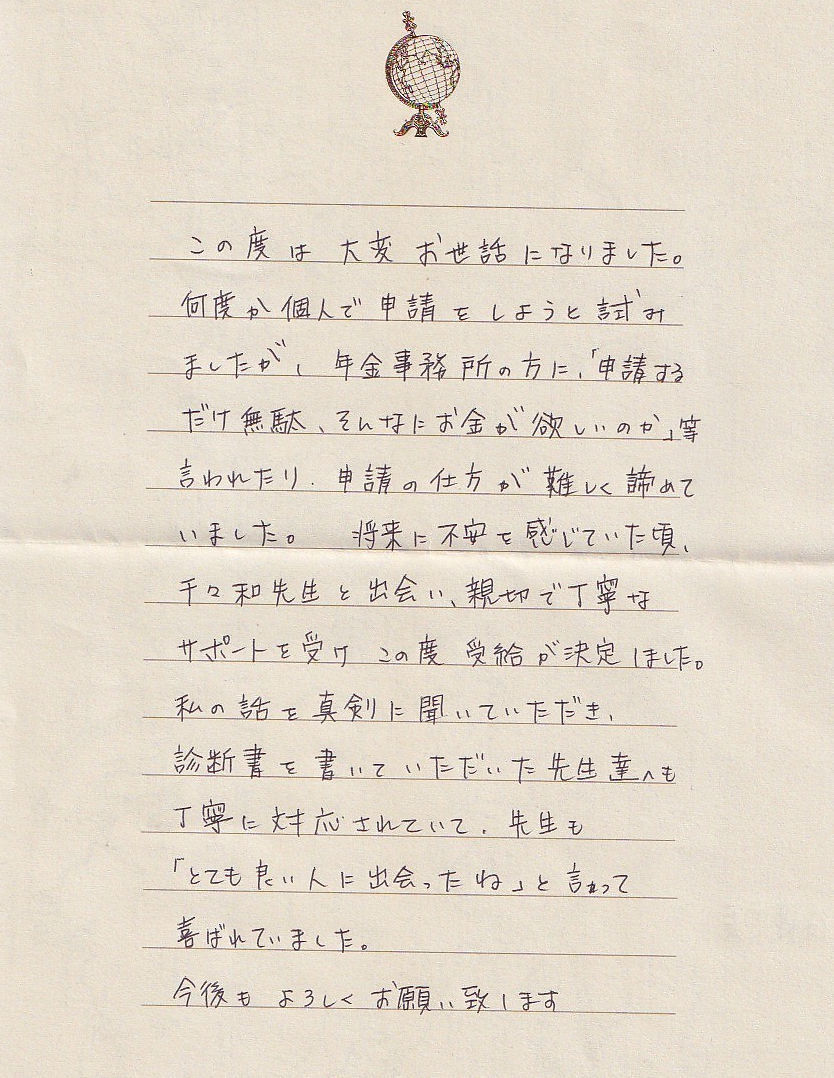 この度は 大変 お世話になりました。
何度か個人で申請をしようと試み
ましたが、年金事務所の方に、「申請する
だけ無駄、そんなにお金が欲しいのか」等
言われたり、申請の仕方が難しく諦めて
いました。 将来に不安を感じていた頃、
千々和先生と出会い、親切で丁寧な
サポートを受け この度 受給が決定しました。
私の話を真剣に聞いていただき、
診断書を書いていただいた先生達へも
丁寧に対応されていて、先生も
「とても良い人に出会ったね」と言って
喜ばれていました。
今後も よろしくお願い致します